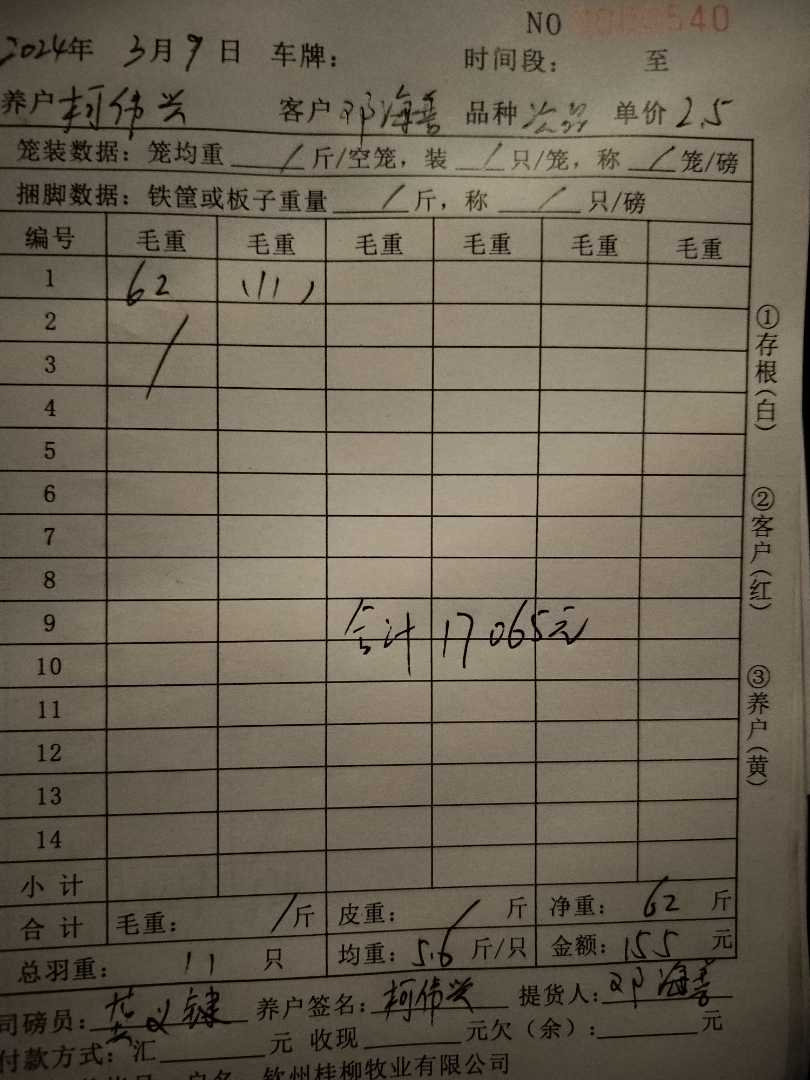 NO 540
2024年 3月9日 车牌: 时间段: 至
养户 柯伟兴 客户 邓海善 品种 次品 单价 2.5
笼装数据: 笼均重 / 斤/空笼, 装 / 只/笼, 称 / 笼/磅
捆脚数据: 铁筐或板子重量 / 斤, 称 / 只/磅
编号 毛重 毛重 毛重 毛重 毛重 毛重
1 62
2
3
4
5
6
7
8
9 合计 17065元
10
11
12
13
14
小计
合计 毛重: / 斤 皮重: / 斤 净重: 62 斤
总羽重: 11 只 均重: 5.6 斤/只 金额: 155 元
司磅员: 义键 养户签名: 柯伟兴 提货人: 邓海善
付款方式: 汇 元 收现 元欠(余): 元
户名 钦州桂柳牧业有限公司
①存根(白)
②客户(红)
③养户(黄)